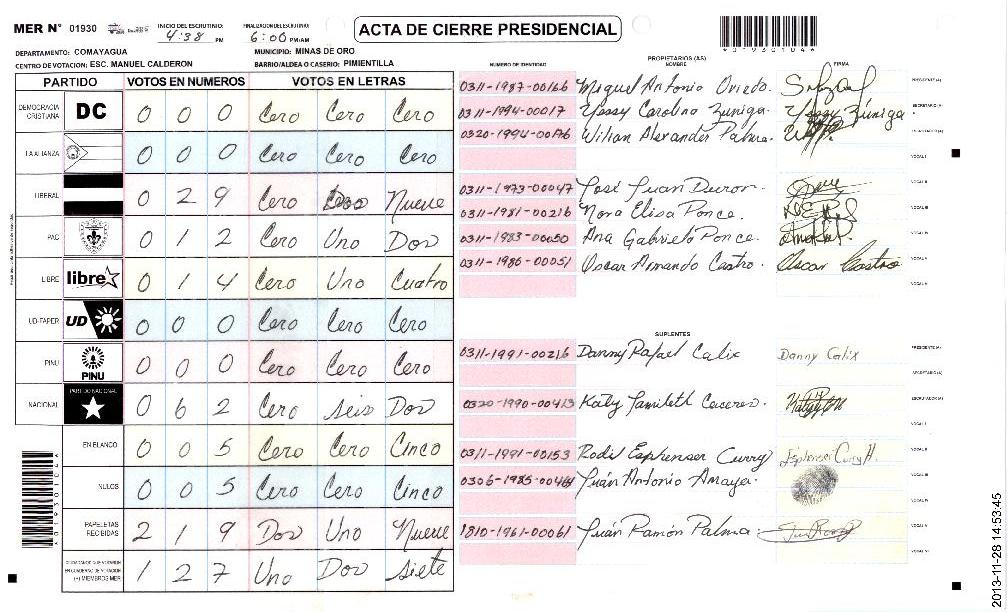 MER N° 01930 INICIO DEL ESCRUTINIO: 4:38 PM FINALIZACION DEL ESCRUTINIO: 6:00 PM/AM
ACTA DE CIERRE PRESIDENCIAL
DEPARTAMENTO: COMAYAGUA MUNICIPIO: MINAS DE ORO
CENTRO DE VOTACION: ESC. MANUEL CALDERON BARRIO/ALDEA O CASERIO: PIMIENTILLA
PARTIDO VOTOS EN NUMEROS VOTOS EN LETRAS
DEMOCRACIA CRISTIANA DC 0 0 0 Cero Cero Cero
LA ALIANZA 0 0 0 Cero Cero Cero
LIBERAL 0 2 9 Cero Dos Nueve
PAC 0 1 2 Cero Uno Dos
LIBRE libre 0 1 4 Cero Uno Cuatro
UD-FAPER UD 0 0 0 Cero Cero Cero
PINU PINU 0 0 0 Cero Cero Cero
NACIONAL PARTIDO NACIONAL 0 6 2 Cero seis Dos
EN BLANCO 0 0 5 Cero Cero Cinco
NULOS 0 0 5 Cero Cero Cinco
PAPELETAS RECIBIDAS 2 1 9 Dos Uno Nueve
(+) MIEMBROS MER 1 2 7 Uno Dos siete
PROPIETARIOS (AS)
NUMERO DE IDENTIDAD NOMBRE FIRMA
0311-1987-00166 Miguel Antonio Oviedo. PRESIDENTE (A)
0311-1994-00017 Yessy Carolina Zuniga. Yessy Zúniga SECRETARIO (A)
Wilian Alexander Palma. ESCRUTADOR (A)
VOCAL I
0311-1973-00047 José Juan Duron. VOCAL II
0311-1981-00216 Nora Elisa Ponce. VOCAL III
0311-1983-00050 Ana Gabriela Ponce. VOCAL IV
0311-1986-00051 Oscar Armando Castro. Oscar Castro VOCAL V
SUPLENTES
0311-1991-00216 Danny Rafael Calix Danny Calix PRESIDENTE (A)
SECRETARIO (A)
0320-1990-00413 Katy Yamileth Caceres. ESCRUTADOR (A)
VOCAL I
0311-1991-00153 Rodil Esphenser Curry VOCAL II
0306-1985-00464 Juán Antonio Amaya. VOCAL III
VOCAL IV
1810-1961-00061 Juán Ramón Palma VOCAL V
A01930104A
2013-11-28 14:53:45